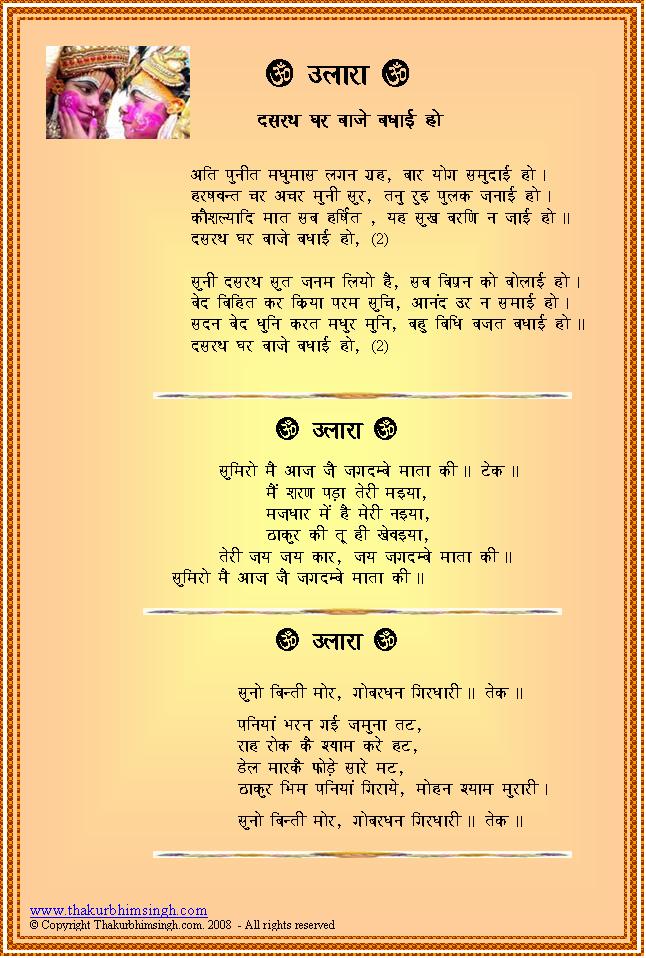 ॐ उलारा ॐ
दसरथ घर बाजे बधाई हो
अति पुनीत मधुमास लगन ग्रह, बार योग समुदाई हो ।
हरषवन्त चर अचर मुनी सुर, तनु रुइ पुलक जनाई हो ।
कौशल्यादि मात सब हर्षित , यह सुख बरणि न जाई हो ॥
दसरथ घर बाजे बधाई हो, (2)
सुनी दसरथ सुत जनम लियो है, सब विप्रन को बोलाई हो ।
वेद विहित कर क्रिया परम सुचि, आनंद उर न समाई हो ।
सदन वेद धुनि करत मधुर मुनि, बहु विधि बजत बधाई हो ॥
दसरथ घर बाजे बधाई हो, (2)
ॐ उलारा ॐ
सुमिरो मै आज जै जगदम्बे माता की ॥ टेक ॥
मैं शरण पड़ा तेरी मइया,
मजधार में है मेरी नइया,
ठाकुर की तू ही खेवइया,
तेरी जय जय कार, जय जगदम्बे माता की ॥
सुमिरो मै आज जै जगदम्बे माता की ॥
ॐ उलारा ॐ
सुनो बिन्ती मोर, गोबरधन गिरधारी ॥ तेक ॥
पनियां भरन गई जमुना तट,
राह रोक कै श्याम करे हट,
डेल मारकै फोड़े सारे मट,
ठाकुर भिम पनियां गिराये, मोहन श्याम मुरारी ।
सुनो बिन्ती मोर, गोबरधन गिरधारी ॥ तेक ॥
www.thakurbhimsingh.com
© Copyright Thakurbhimsingh.com. 2008 - All rights reserved